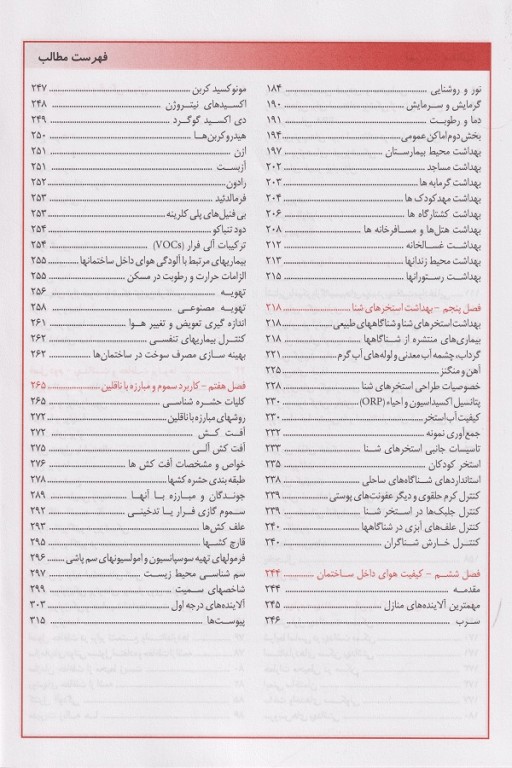 فهرست مطالب
نور و روشنایی ۱۸۴
گرمایش و سرمایش ۱۹۰
دما و رطوبت ۱۹۱
بخش دوم اماکن عمومی ۱۹۴
بهداشت محیط بیمارستان ۱۹۷
بهداشت مساجد ۲۰۲
بهداشت گرمابه ها ۲۰۳
بهداشت مهدکودک ها ۲۰۴
بهداشت کشتارگاه ها ۲۰۶
بهداشت هتل‌ها و مسافرخانه ها ۲۰۸
بهداشت غسالخانه ۲۱۲
بهداشت محیط زندانها ۲۱۳
بهداشت رستورانها ۲۱۵
فصل پنجم – بهداشت استخرهای شنا ۲۱۸
بهداشت استخرهای شنا و شناگاههای طبیعی ۲۱۸
بیماری‌های منتشره از شناگاهها ۲۱۸
گرداب، چشمه آب معدنی و لوله‌های آب گرم ۲۲۱
آهن و منگنز ۲۲۵
خصوصیات طراحی استخرهای شنا ۲۲۸
پتانسیل اکسیداسیون و احیاء (ORP) ۲۳۰
کیفیت آب استخر ۲۳۰
جمع‌آوری نمونه ۲۳۲
تاسیسات جانبی استخرهای شنا ۲۳۳
استخر کودکان ۲۳۵
استانداردهای شناگاه‌های ساحلی ۲۳۸
کنترل کرم حلقوی و دیگر عفونت‌های پوستی ۲۳۹
کنترل جلبک‌ها در استخر شنا ۲۳۹
کنترل علف‌های آبزی در شناگاهها ۲۴۰
کنترل خارش شناگران ۲۴۰
فصل ششم – کیفیت هوای داخل ساختمان ۲۴۴
مقدمه ۲۴۴
مهمترین آلاینده‌های منازل ۲۴۵
سرب ۲۴۶
مونوکسید کربن ۲۴۷
اکسیدهای نیتروژن ۲۴۸
دی اکسید گوگرد ۲۴۹
هیدروکربن‌ها ۲۵۰
ازن ۲۵۱
آزبست ۲۵۱
رادون ۲۵۲
فرمالدئید ۲۵۳
بی فنیل‌های پلی کلرینه ۲۵۳
دود تنباکو ۲۵۴
ترکیبات آلی فرار (VOCs) ۲۵۴
بیماریهای مرتبط با آلودگی هوای داخل ساختمانها ۲۵۵
الزامات حرارت و رطوبت در مسکن ۲۵۵
تهویه ۲۵۶
تهویه مصنوعی ۲۵۸
اندازه گیری تعویض و تغییر هوا ۲۶۱
کنترل بیماریهای تنفسی ۲۶۲
بهینه سازی مصرف سوخت در ساختمان‌ها ۲۶۲
فصل هفتم – کاربرد سموم و مبارزه با ناقلین ۲۶۵
کلیات حشره شناسی ۲۶۵
روشهای مبارزه با ناقلین ۲۷۲
آفت کش ۲۷۲
آفت کش آلی ۲۷۵
خواص و مشخصات آفت کش ها ۲۷۶
طبقه بندی حشره کشها ۲۷۸
جوندگان و مبارزه با آنها ۲۸۹
سموم گازی فرار یا تدخینی ۲۹۲
علف کش‌ها ۲۹۳
قارچ کشها ۲۹۵
فرمولهای تهیه سوسپانسیون و امولسیونهای سم پاشی ۲۹۶
سم شناسی محیط زیست ۲۹۷
شاخصهای سمیت ۲۹۹
آلاینده‌های درجه اول ۳۰۳
پیوست‌ها ۳۱۵